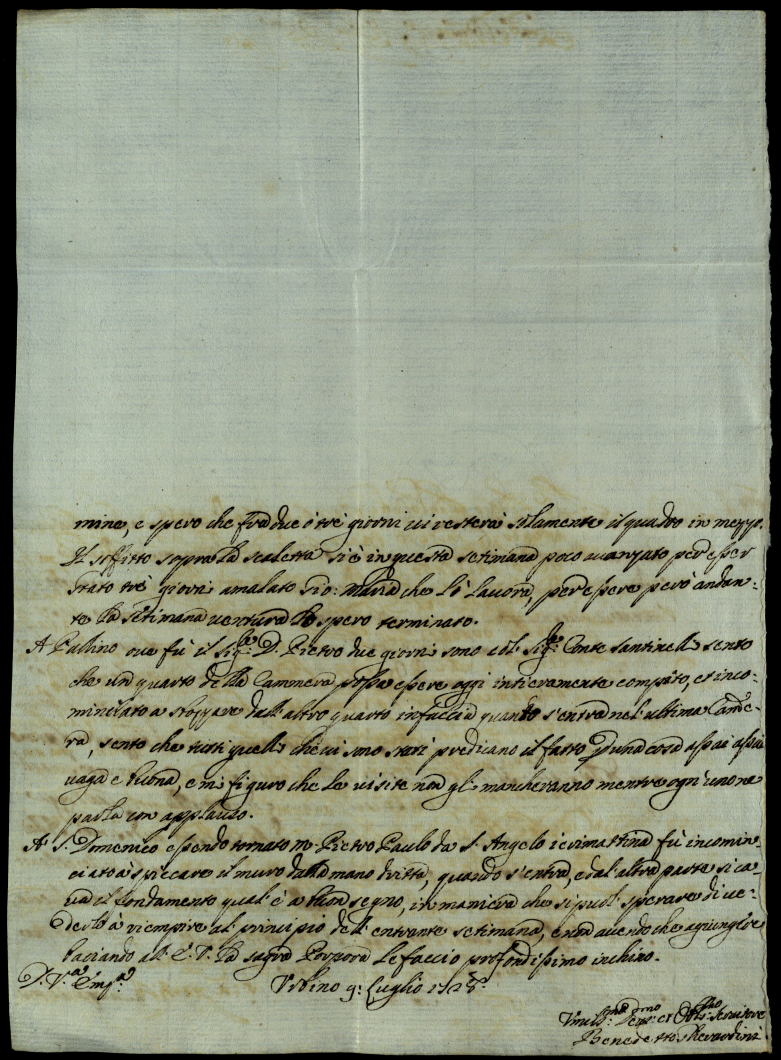 mine, e spero che frà due ò trè giorni ui resterà solamente il quadro in mezzo.
Il soffitto sopra la scaletta si è in questa setimana poco auanzato per esser
stato trè giorni amalato Gio: Maria che lo lauora, per essere però andan:
te la setimana uentura lo spero terminato.
A Pallino oue fù il Sig.re D. Pietro due giorni sono col Sig.re Conte Santinelli sento
che un quarto della Cammera possa essere oggi intieramente compito, et inco:
minciato a stozzare dall'altro quarto in faccia quando s'entra nel'ultima Came:
ra, sento che tutti quelli che ui sono stati predicano il fatto p una cosa assai assai
uaga e buona, e mi figuro che le uisite non gli mancheranno mentre ogn'uno ne
parla con applauso.
A S. Domenico essendo tornato m.o Pietro Paulo da S. Angelo ieri mattina fù incomin:
ciato à spiccare il muro dalla mano dritta, quando s'entra, e dal'altra parte si ca:
ua il fondamento qual'è a buon segno, in maniera che si puol sperare di ue:
derlo à riempire al principio dell'entrante setimana, e non auendo che agiungere
baciando all'E. V. la sagra Porpora le faccio profondissimo inchino.
D. V.a Em.za
Urbino 9: Luglio 1728.
Umiliss.mo Deu.mo et Obl.mo Seruitore
Benedetto